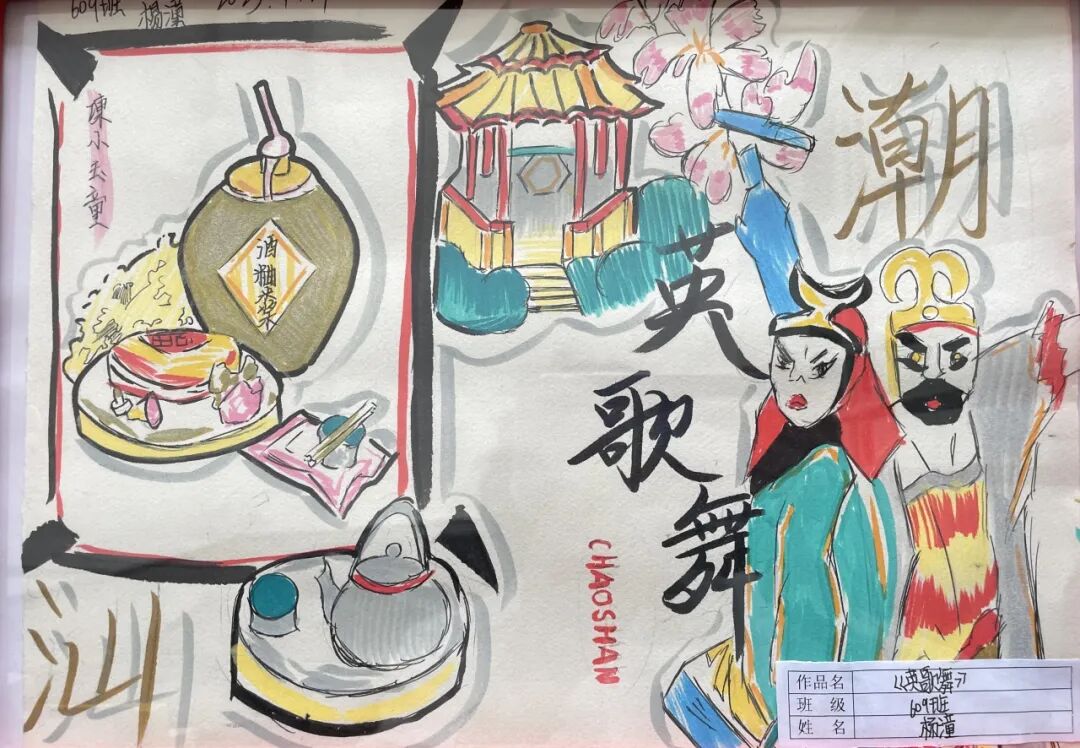 609班 杨潼
潮
英
歌
舞
CHAOSHAN
汕
作品名 《英歌舞》
班 级 609班
姓 名 杨潼